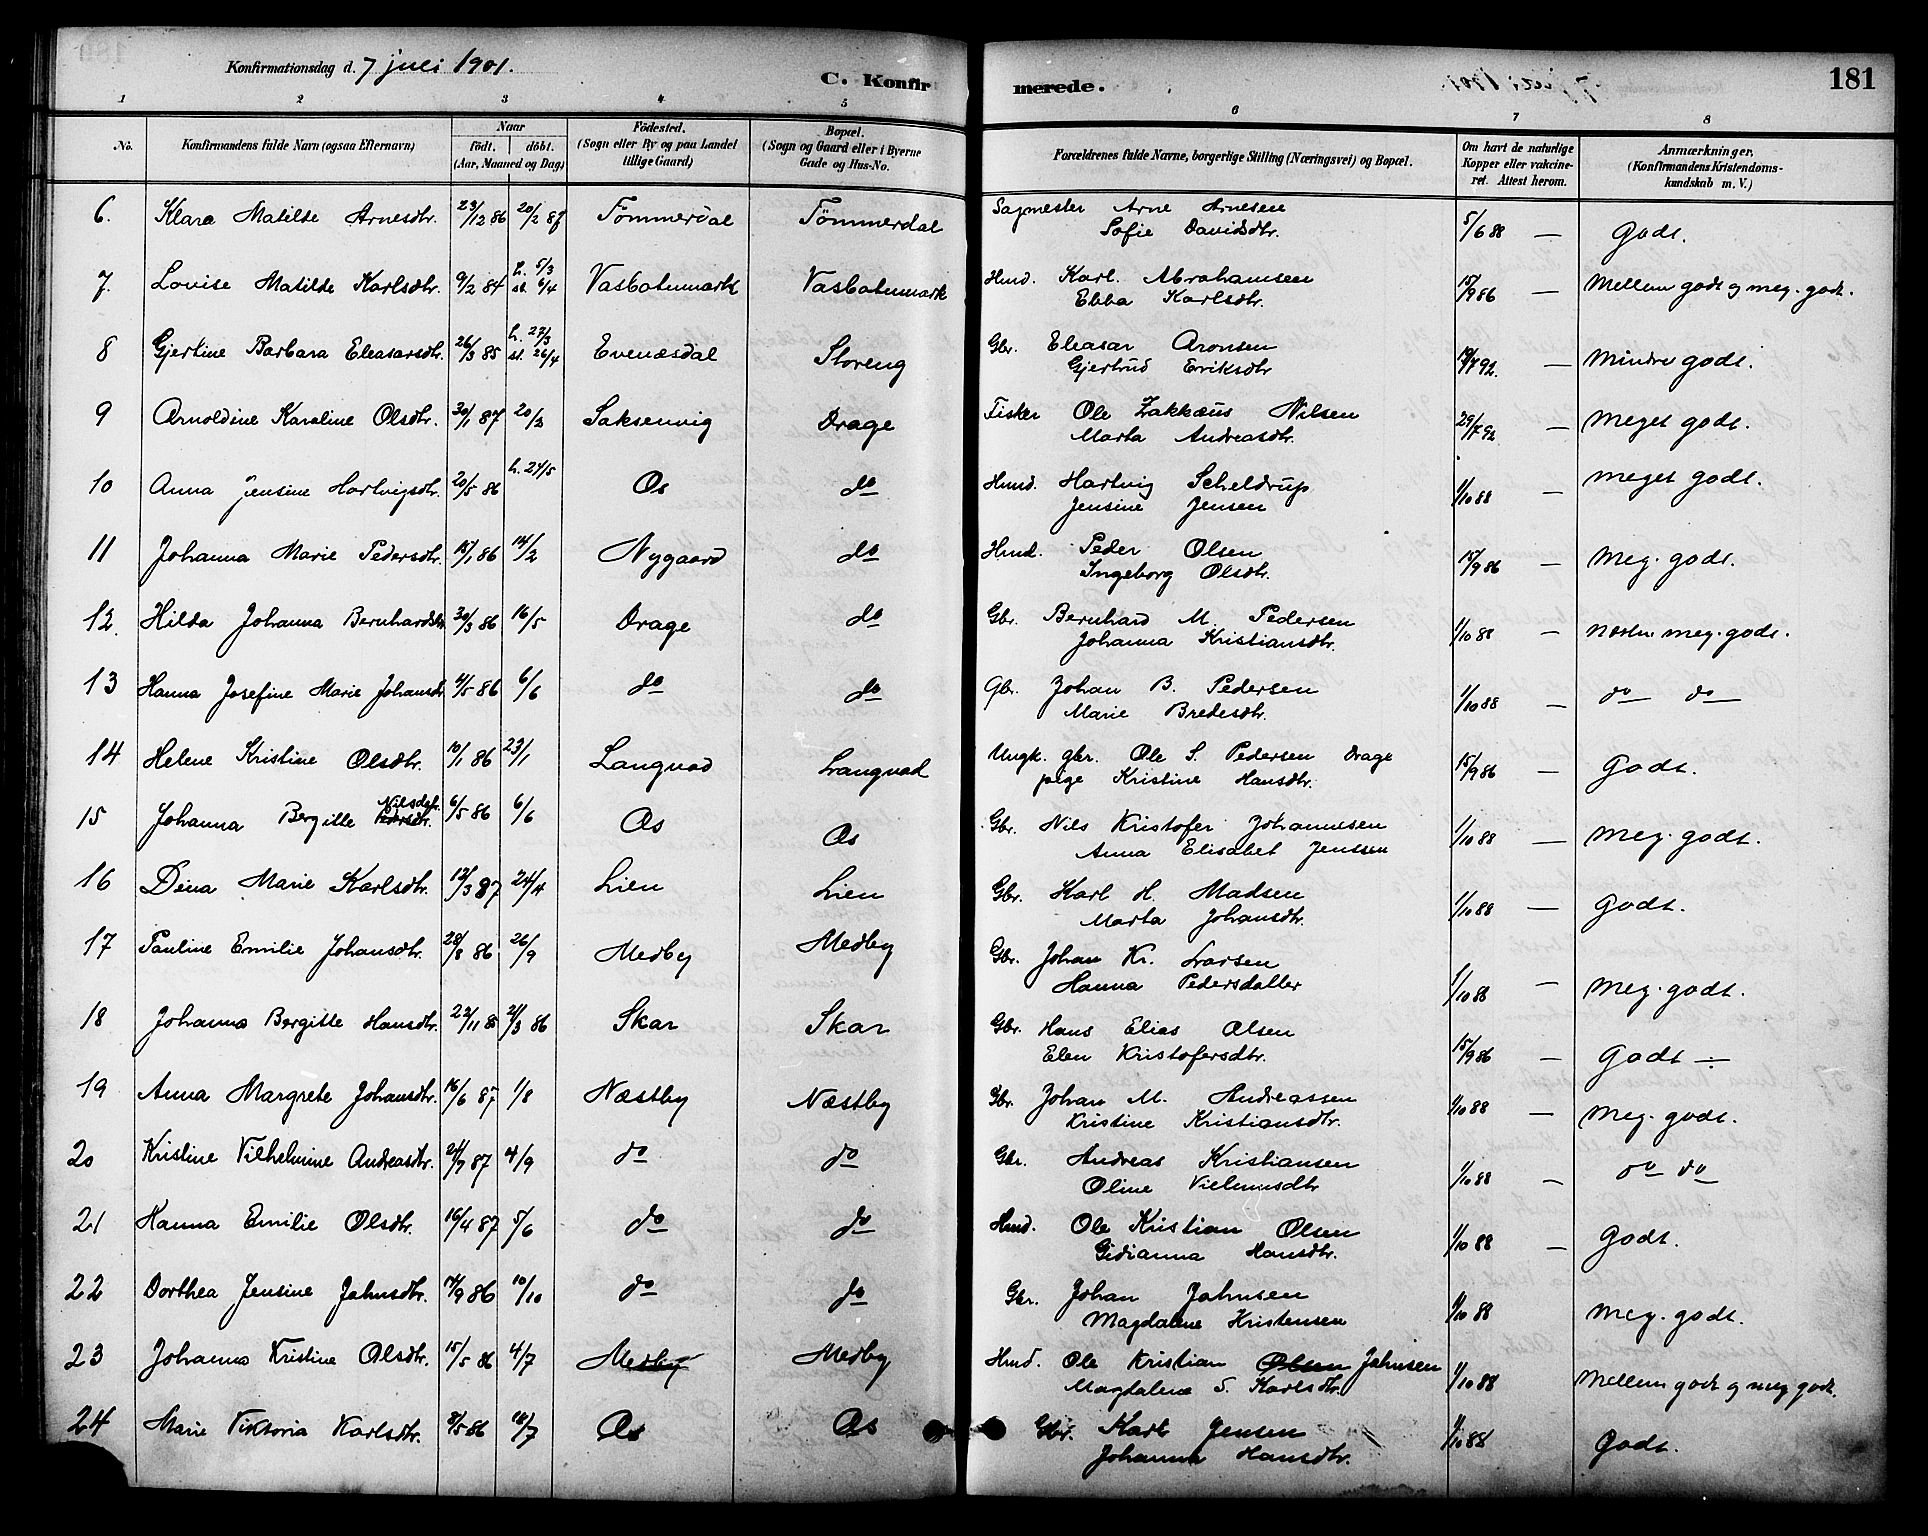 Konfirmationsdag d. 7 juli 1901.
C. Konfirmerede.
181
1 2 3 4 5 6 7 8
No. | Konfirmandens fulde Navn (ogsaa Efternavn) | Naar født. døbt. (Aar, Maaned og Dag) | Fødested. (Sogn eller By og paa Landet tillige Gaard) | Bopæl. (Sogn og Gaard eller i Byerne Gade og Hus-No. | Forældrenes fulde Navne, borgerlige Stilling (Næringsvei) og Bopæl. | Om havt de naturlige Kopper eller vakcineret. Attest herom. | Anmærkninger, (Konfirmandens Kristendomskundskab m. V.)
6. Klara Matilde Arnesdtr. 23/12 86 20/2 87 Tømmerdal Tømmerdal Sagmester Arne Arnesen 5/6 88 — Godt.
Sofie Davidsdtr.
7. Lovise Matilde Karlsdtr. 9/2 84 h. 5/3 st. 6/4 Vasbotnmark Vasbotnmark Hmd. Karl Abrahamsen 15/9 86 — Mellem godt og meg. godt.
Ebba Karlsdtr.
8 Gjertine Barbara Eleasarsdtr. 26/3 85 h. 27/3 st. 26/4 Evenæsdal Storeng Gbr. Eleasar Aronsen 19/7 92. — Mindre godt.
Gjertrud Eriksdtr
9 Arnoldine Karoline Olsdtr. 30/1 87 20/2 Saksenvig Drage Fisker Ole Zakkæus Nilsen 29/7 92 — Meget godt.
Marta Andreasdtr.
10 Anna Jensine Hartvigsdtr. 20/5 86 h. 24/5 Os do Hmd. Hartvig Scheldrup 1/10 88 — meget godt.
Jensine Jensen
11 Johanna Marie Pedersdtr. 15/1 86 14/2 Nygaard do Hmd. Peder Olsen 15/9 86 — Meg. godt.
Ingeborg Olsdtr.
12. Hilda Johanna Bernhardsdtr 30/3 86 16/5 Drage do Gbr. Bernhard M. Pedersen 1/10 88 — næsten meg. godt.
Johanna Kristiansdtr.
13 Hanna Josefine Marie Johansdtr 4/5 86 6/6 do do Gbr. Johan B. Pedersen 1/10 88 — do do
Marie Bredesdtr.
14 Helene Kristine Olsdtr. 10/1 86 23/1 Langvad Langvad Ungk. gbr. Ole S. Pedersen Drage 15/9 86 — Godt.
pige Kristine Hansdtr.
15 Johanna Bergitte Pedersdtr. Nilsdtr. 6/5 86 6/6 Os Os Gbr. Nils Kristofer Johannesen 1/10 88 — Meg. godt.
Anna Elisabet Jenssen
16 Dina Marie Karlsdtr. 12/3 87 24/4 Lien Lien Gbr. Karl H. Madsen 1/10 88 — Godt.
Marta Johansdtr.
17 Pauline Emilie Johansdtr. 28/8 86. 26/9 Medby Medby Gbr. Johan Kr. Larsen 1/10 88 — Meg. godt.
Hanna Pedersdatter
18 Johanna Bergitte Hansdtr. 22/11 85 21/3 86 Skar Skar Gbr. Hans Elias Olsen 15/9 86 — Godt
Elen Kristofersdtr.
19 Anna Margrete Johansdtr. 16/6 87 1/8 Næstby Næstby Gbr. Johan M. Andreassen 1/10 88 — Meg. godt.
Kristine Kristiansdtr.
20 Kristine Vilhelmine Andreasdtr. 24/7 87 4/9 do do Gbr. Andreas Kristiansen 1/10 88 — do do
Oline Vielmusdtr
21 Hanna Emilie Olsdtr. 16/4 87 5/6 do do Hmd. Ole Kristian Olsen 1/10 88 — Godt.
Gidianna Hansdtr.
22 Dorthea Jensine Jahnsdtr. 14/9 86 10/10 do do Gbr. Johan Jahnsen 1/10 88 Meg. godt.
Magdalene Kristensen
23 Johanna Kristine Olsdtr. 15/5 86 4/7 Medby Medby Hmd. Ole Kristian Olsen Jahnsen 1/10 88 Mellem godt og meg. godt.
Magdalena S. Karlsdtr.
24 Marie Viktoria Karlsdtr. 8/5 86 18/7 Os Os Gbr. Karl Jensen 1/10 88 Godt.
Johanna Hansdtr.